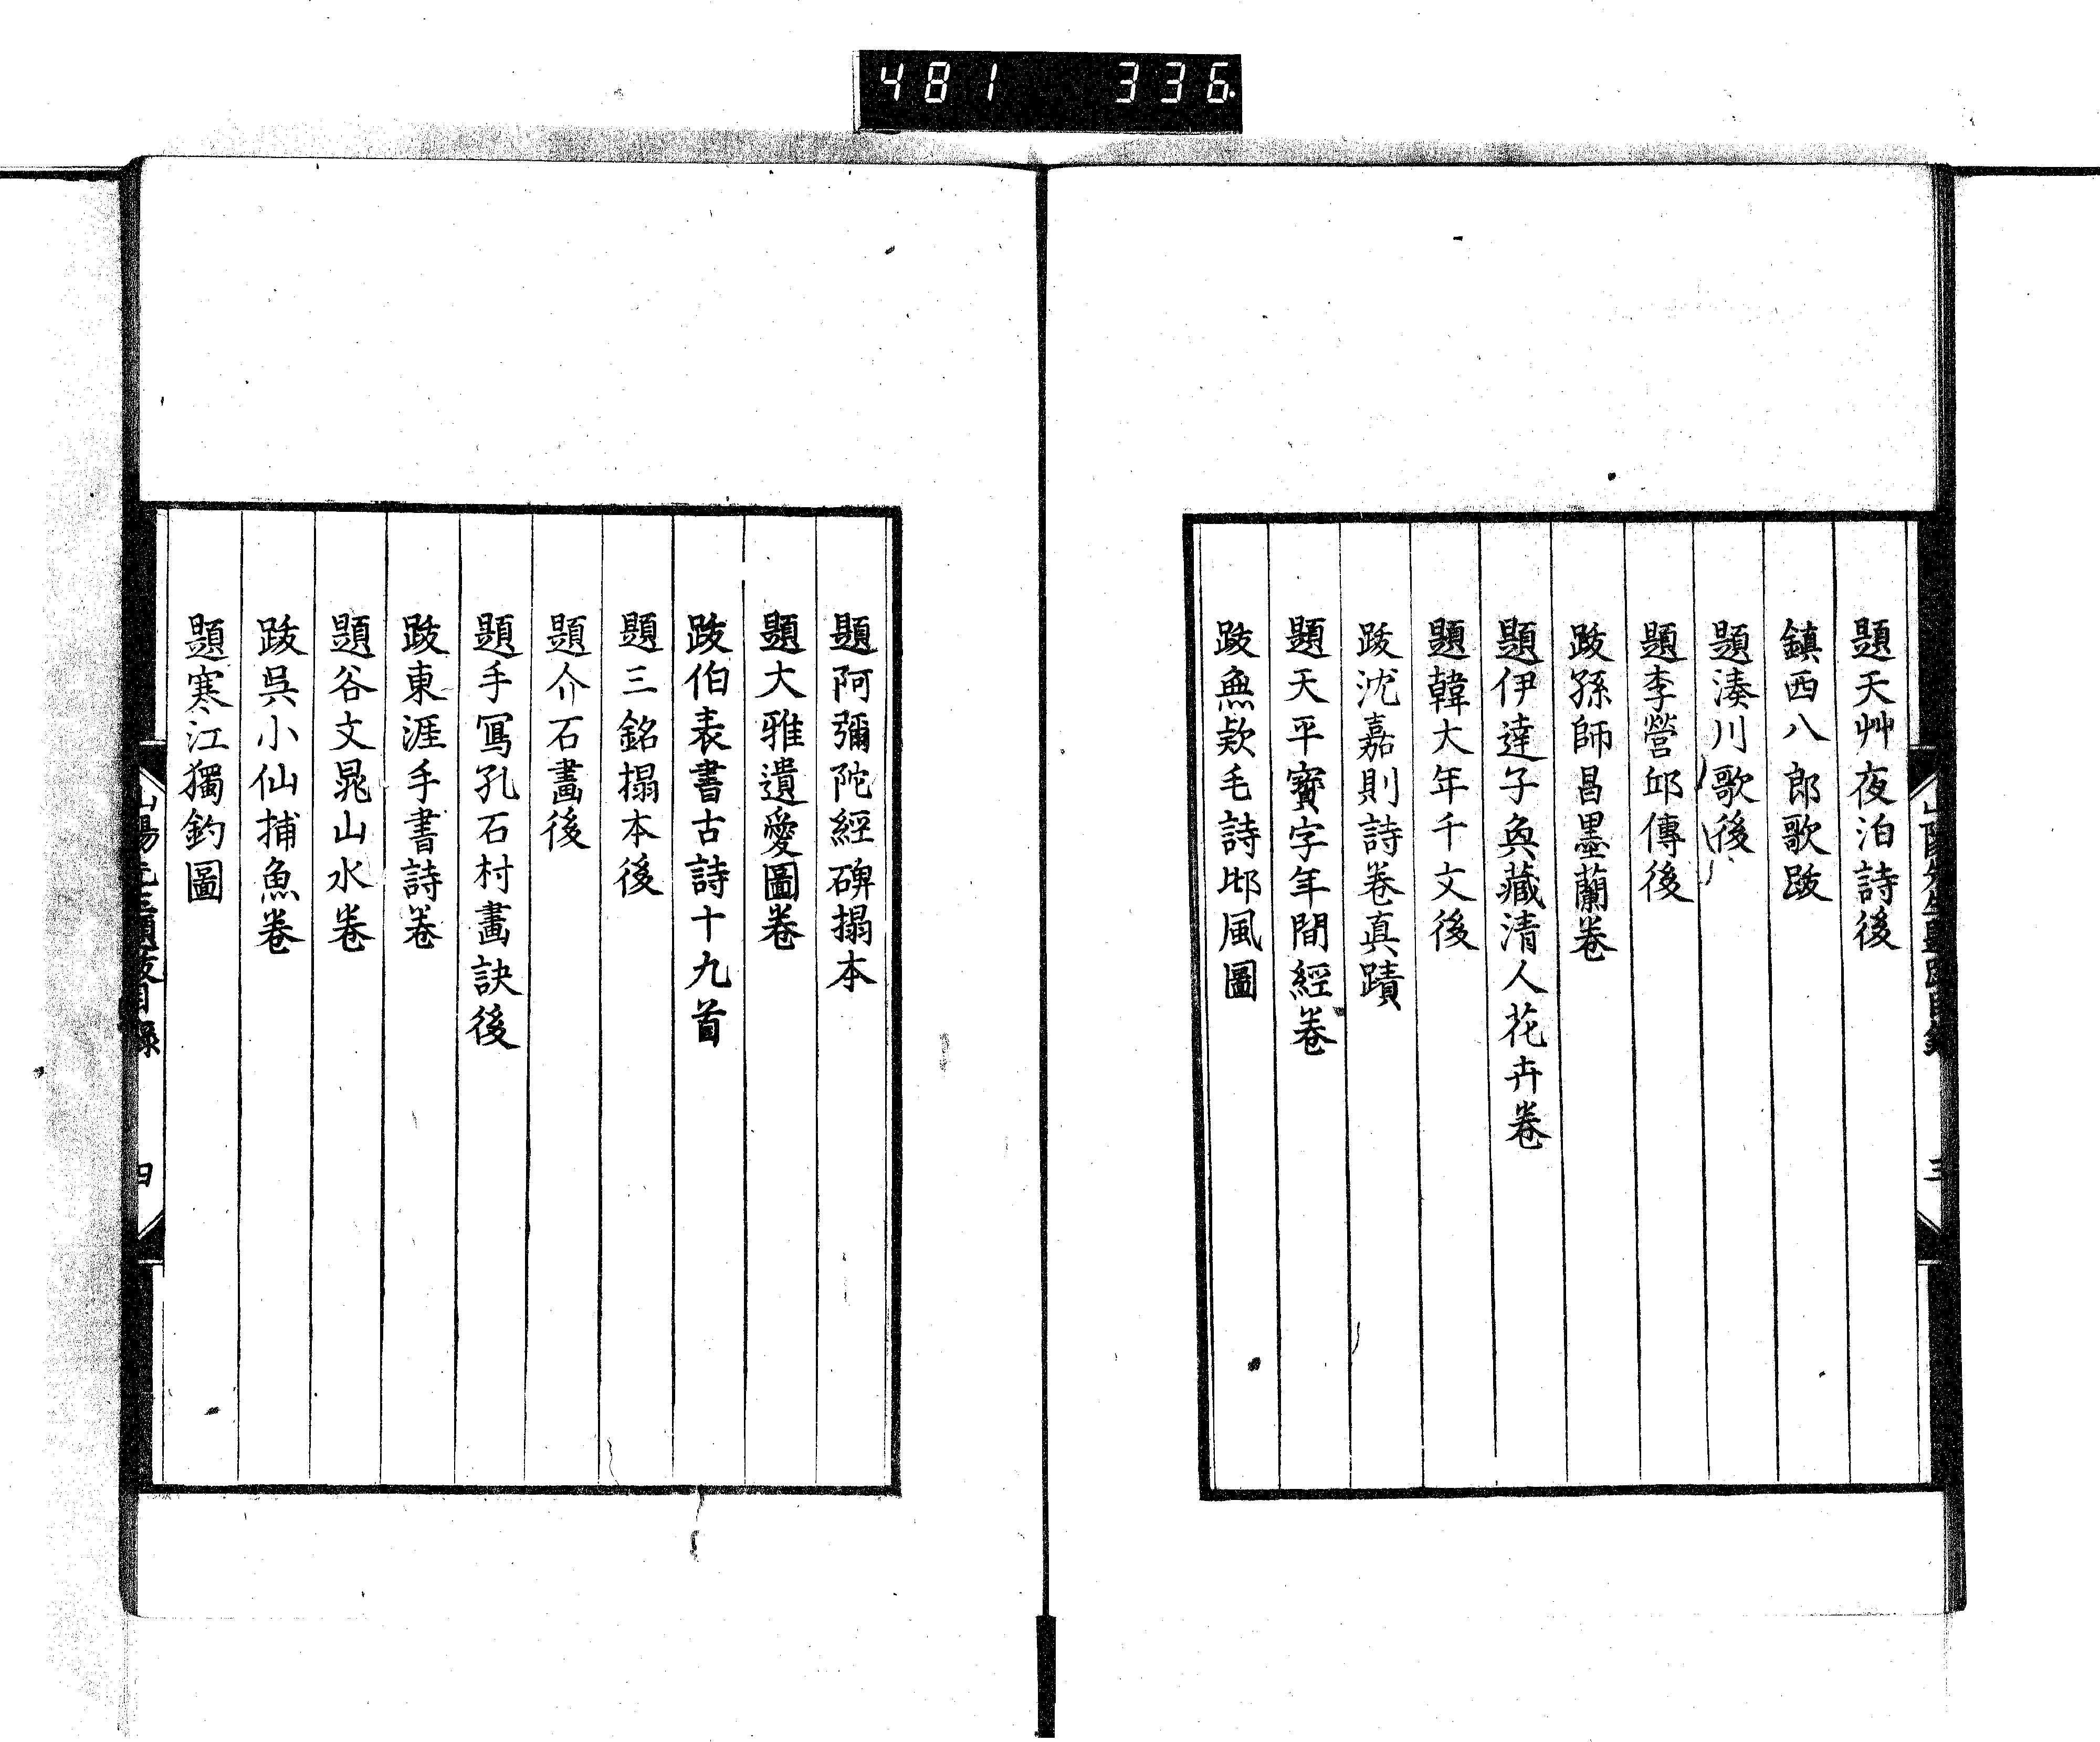 481 336
題天艸夜泊詩後
鎮西八郎歌跋
題湊川歌後
題李營邱傳後
跋孫師昌墨蘭卷
題伊達子奐藏清人花卉卷
題韓大年千文後
跋沈嘉則詩卷真蹟
題天平寶字年間經卷
跋無款毛詩邶風圖
題阿彌陀經碑搨本
題大雅遺愛圖卷
跋伯表書古詩十九首
題三銘搨本後
題介石畫後
題手寫孔石村畫訣後
跋東涯手書詩卷
題谷文晁山水卷
跋吳小仙捕魚卷
題寒江獨釣圖